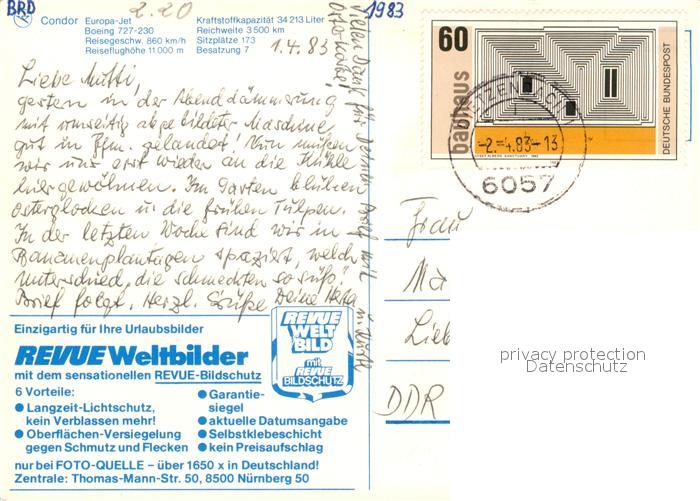 BRD
2.20
1983
Condor Europa-Jet
Boeing 727-230
Reisegeschw. 860 km/h
Reiseflughöhe 11 000 m
Kraftstoffkapazität 34 213 Liter
Reichweite 3 500 km
Sitzplätze 173
Besatzung 7
1.4.83
Liebe Mutti,
gestern in der Abenddämmerung
mit umseitig abgebildeter Maschine
gut in Ffm. gelandet! Nun müssen
wir uns erst wieder an die Kühle
hier gewöhnen. Im Garten blühen
Osterglocken u. die frühen Tulpen.
In der letzten Woche sind wir in
Bananenplantagen spaziert, welch
Unterschied, die schmeckten so süß!
Brief folgt. Herzl. Grüße Deine
Vielen Dank für Deinen Brief mit
60
bauhaus
DEUTSCHE BUNDESPOST
-2.-4.83-13
6057
Frau
Lieb
DDR
privacy protection
Datenschutz
Einzigartig für Ihre Urlaubsbilder
REVUE Weltbilder
mit dem sensationellen REVUE-Bildschutz
REVUE
WELT
BILD
mit
REVUE
BILDSCHUTZ
6 Vorteile:
● Langzeit-Lichtschutz,
kein Verblassen mehr!
● Oberflächen-Versiegelung
gegen Schmutz und Flecken
● Garantie-
siegel
● aktuelle Datumsangabe
● Selbstklebeschicht
● kein Preisaufschlag
nur bei FOTO-QUELLE – über 1650 x in Deutschland!
Zentrale: Thomas-Mann-Str. 50, 8500 Nürnberg 50